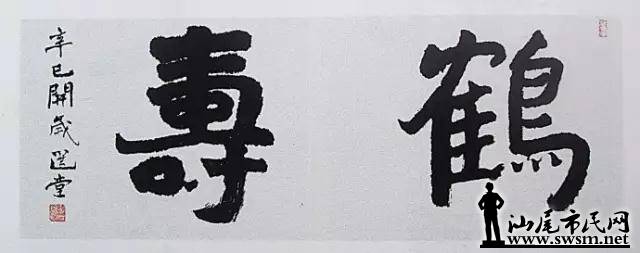 鶴壽
辛巳開歲選堂
汕尾市民网
www.swsm.net